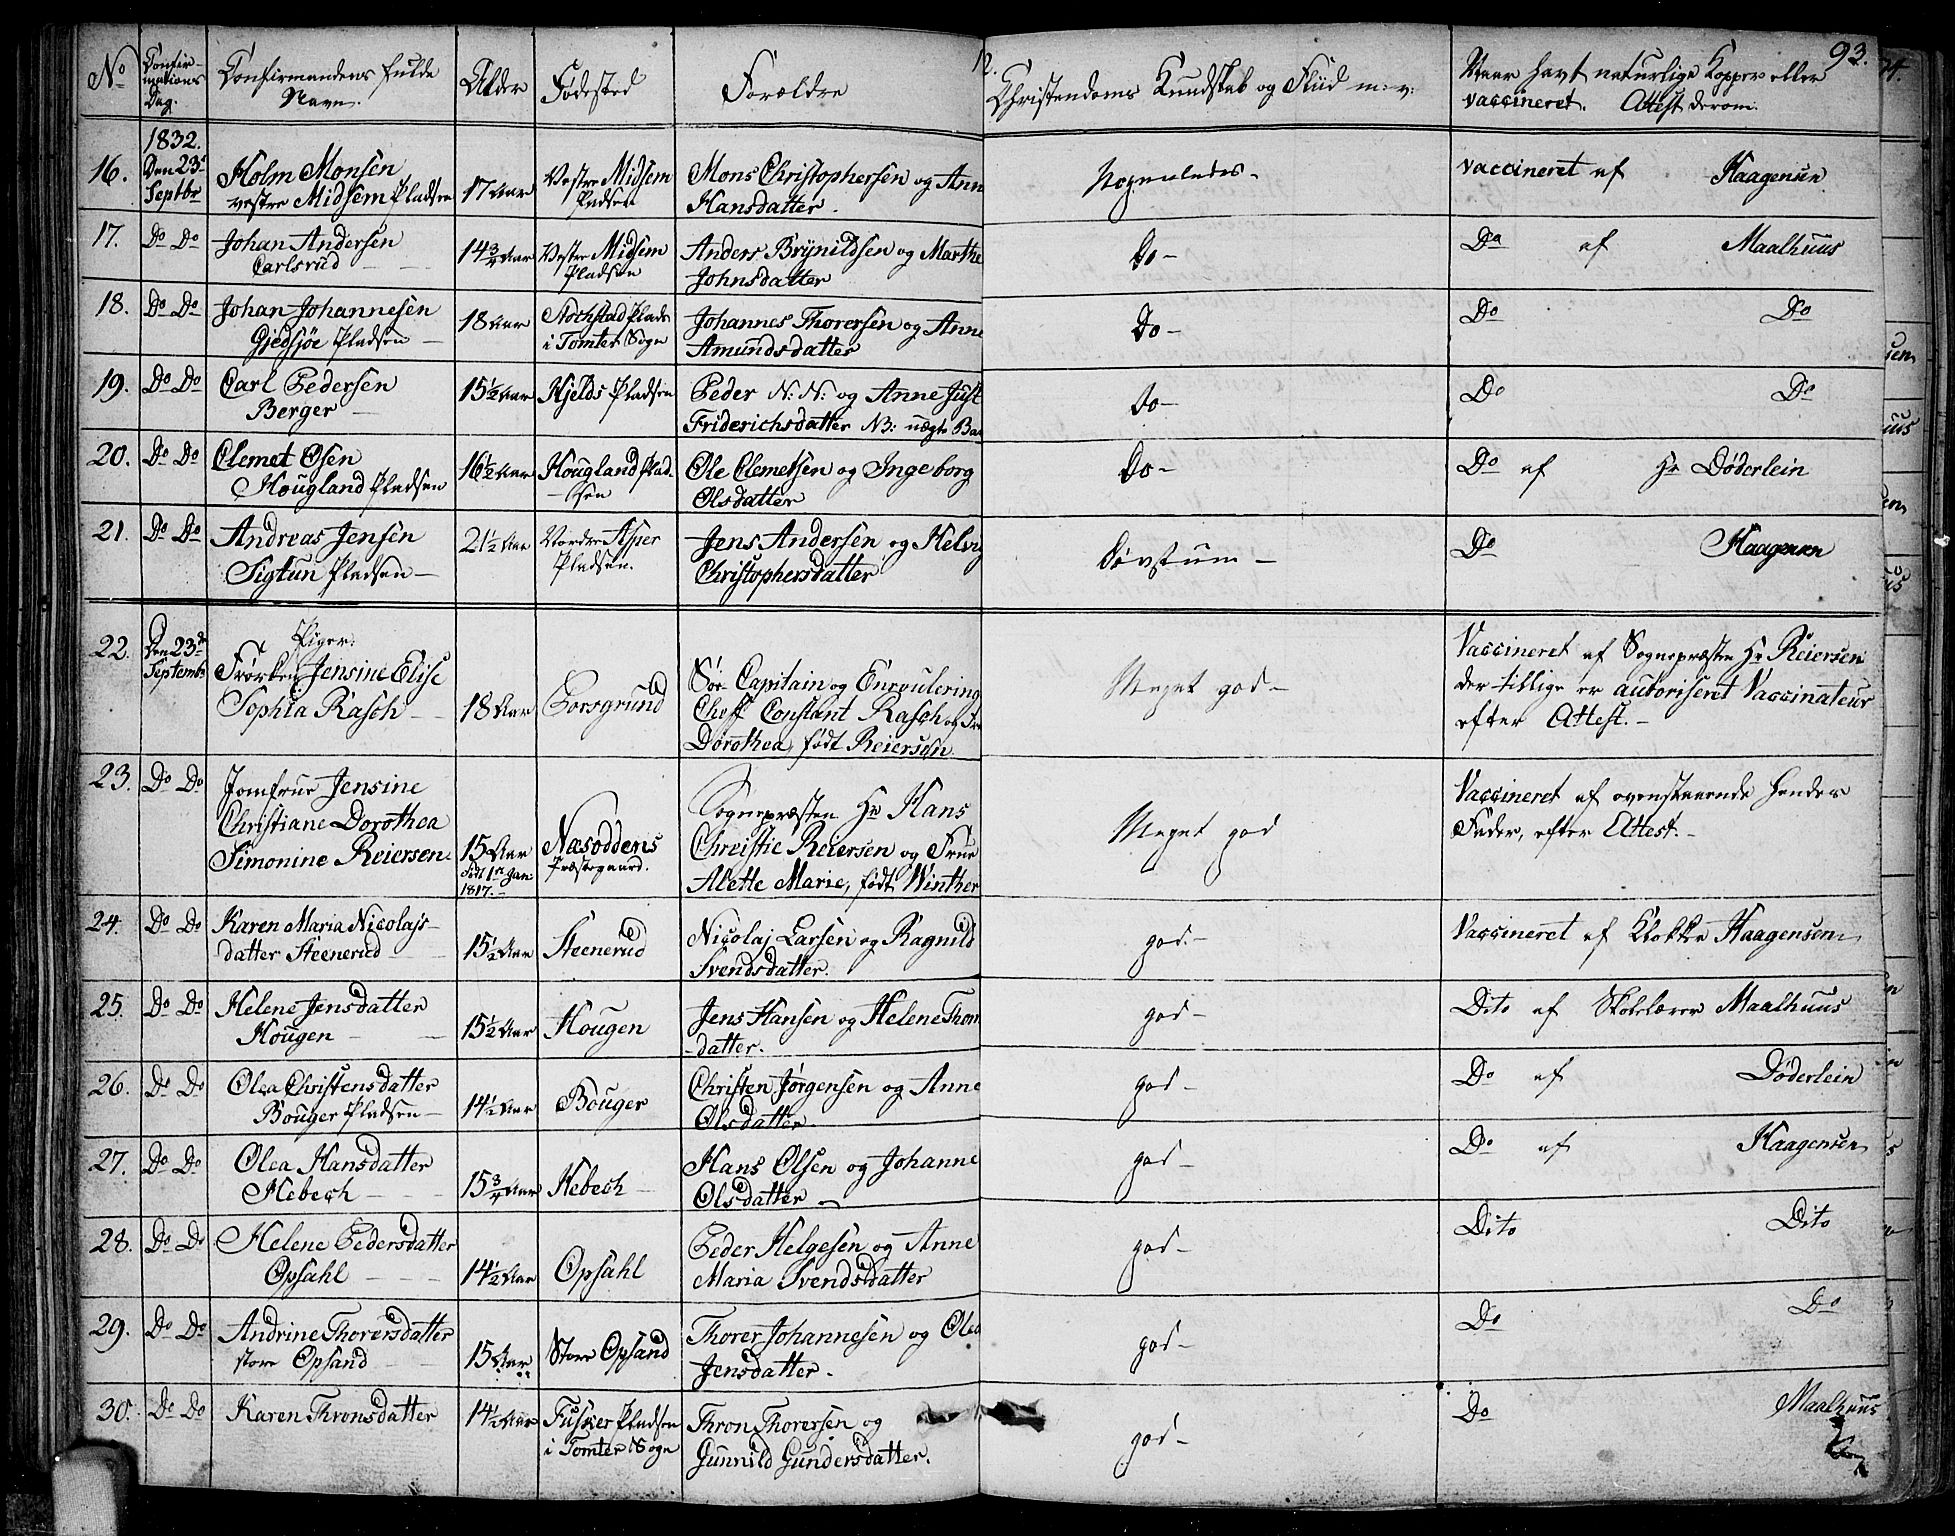 93.
No Confir- Confirmandens fulde Alder Fødested Forældre Christendoms Kundskab og Flid m: v: Naar havt naturlige Kopper eller
mations Navn. vaccineret. Attest derom.
Dag.
1832.
16. Den 23de Holm Monsen 17 Aar Vestre Midsem Mons Christophersen og Ann Nogenledes - vaccineret af Haagensen
Septbr vestre Midsem Pladsen Pladsen Hansdatter.
17. Do Do Johan Andersen 14 3/4 Aar Vestre Midsem Anders Brynildsen og Marthe Do - Do af Maalhuus
Carlsrud Pladsen Johnsdatter
18. Do Do Johan Johannesen 18 Aar Johannes Thorersen og Anne Do - Do Do
Gjedsjøe Pladsen - i Tomter Sogn Amundsdatter
19. Do Do Carl Pedersen 15 1/2 Aar Kjelds Pladsen Peder N: N: og Anne Just Do - Do Do
Berger - Friderichsdatter NB: uægte Ba
20. Do Do Clemet Olsen 16 1/2 Aar Hougland Plad- Ole Clemetsen og Ingeborg Do - Do af Hr Døderlein
Hougland Pladsen sen Olsdatter
21. Do Do Andreas Jensen 21 1/2 Aar Nordre Asper Jens Andersen og Helvig Døvstum - Do Haagensen
Sigtun Pladsen - Pladsen. Christophersdatter
Piger:
22. Den 23de Frøcken Jensine Elise 18 Aar Porsgrund Søe Capitain og Enroulering Meget god - Vaccineret af Sognepræsten Hr Reiersen
Septembr Sophia Rasch - Cheff Constant Rasch og Fru der tillige er autoriseret Vaccinateur
Dorothea, født Reiersen efter Attest. -
23. Do Do Jomfrue Jensine 15 Aar Næsoddens Sognepræsten Hr Hans Meget god Vaccineret af ovenstaaende hendes
Christiane Dorothea født 1ste Jan Præstegaard. Christie Reiersen og Frue Fader, efter Attest. -
Simonine Reiersen. 1817. - Alette Marie, født Winther
24. Do Do Karen Maria Nicolajs- 15 1/2 Aar Steenerud Nicolaj Larsen og Ragnild god. - Vaccineret af Klokker Haagensen
datter Steenerud Svendsdatter.
25. Do Do Helene Jensdatter 15 1/2 Aar Hougen Jens Hansen og Helene Thom god - Dito af Skolelærer Maalhuus
Hougen - - datter.
26. Do Do Olea Christensdatter 14 1/2 Aar Bouger Christen Jørgensen og Anne god - Do af Døderlein
Bouger Pladsen - Olsdatter.
27. Do Do Olea Hansdatter 15 3/4 Aar Hebech Hans Olsen og Johanne god - Do af Haagensen
Hebech - Olsdatter -
28. Do Do Helene Pedersdatter 14 1/2 Aar Opsahl Peder Helgesen og Anne god - Dito Dito
Opsahl - Maria Svendsdatter
29. Do Do Andrine Thorersdatter 15 Aar Store Opsand Thorer Johannesen og Olea god - Do Do
store Opsand Jensdatter.
30. Do Do Karen Thronsdatter 14 1/2 Aar Fusker Pladsen Thron Thorersen og god - Do Maalhuus
i Tomter Sogn Gunnild Gundersdatter.